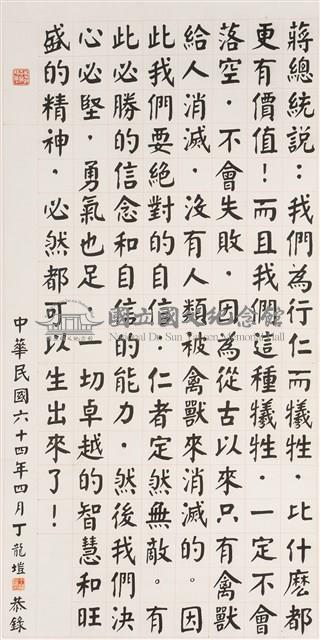 蔣總統說：我們為行仁而犧牲，比什麼都
更有價值！而且我們這種犧牲，一定不會
落空，不會失敗，因為從古以來只有禽獸
給人消滅，沒有人類被禽獸來消滅的。因
此我們要絕對的自信：仁者定然無敵。有
此必勝的信念和自信的能力，然後我們決
心必堅，勇氣也足，一切卓越的智慧和旺
盛的精神，必然都可以生出來了！
中華民國六十四年四月丁龍塏恭錄
國立國父紀念館
National Dr. Sun Yat-sen Memorial Hall